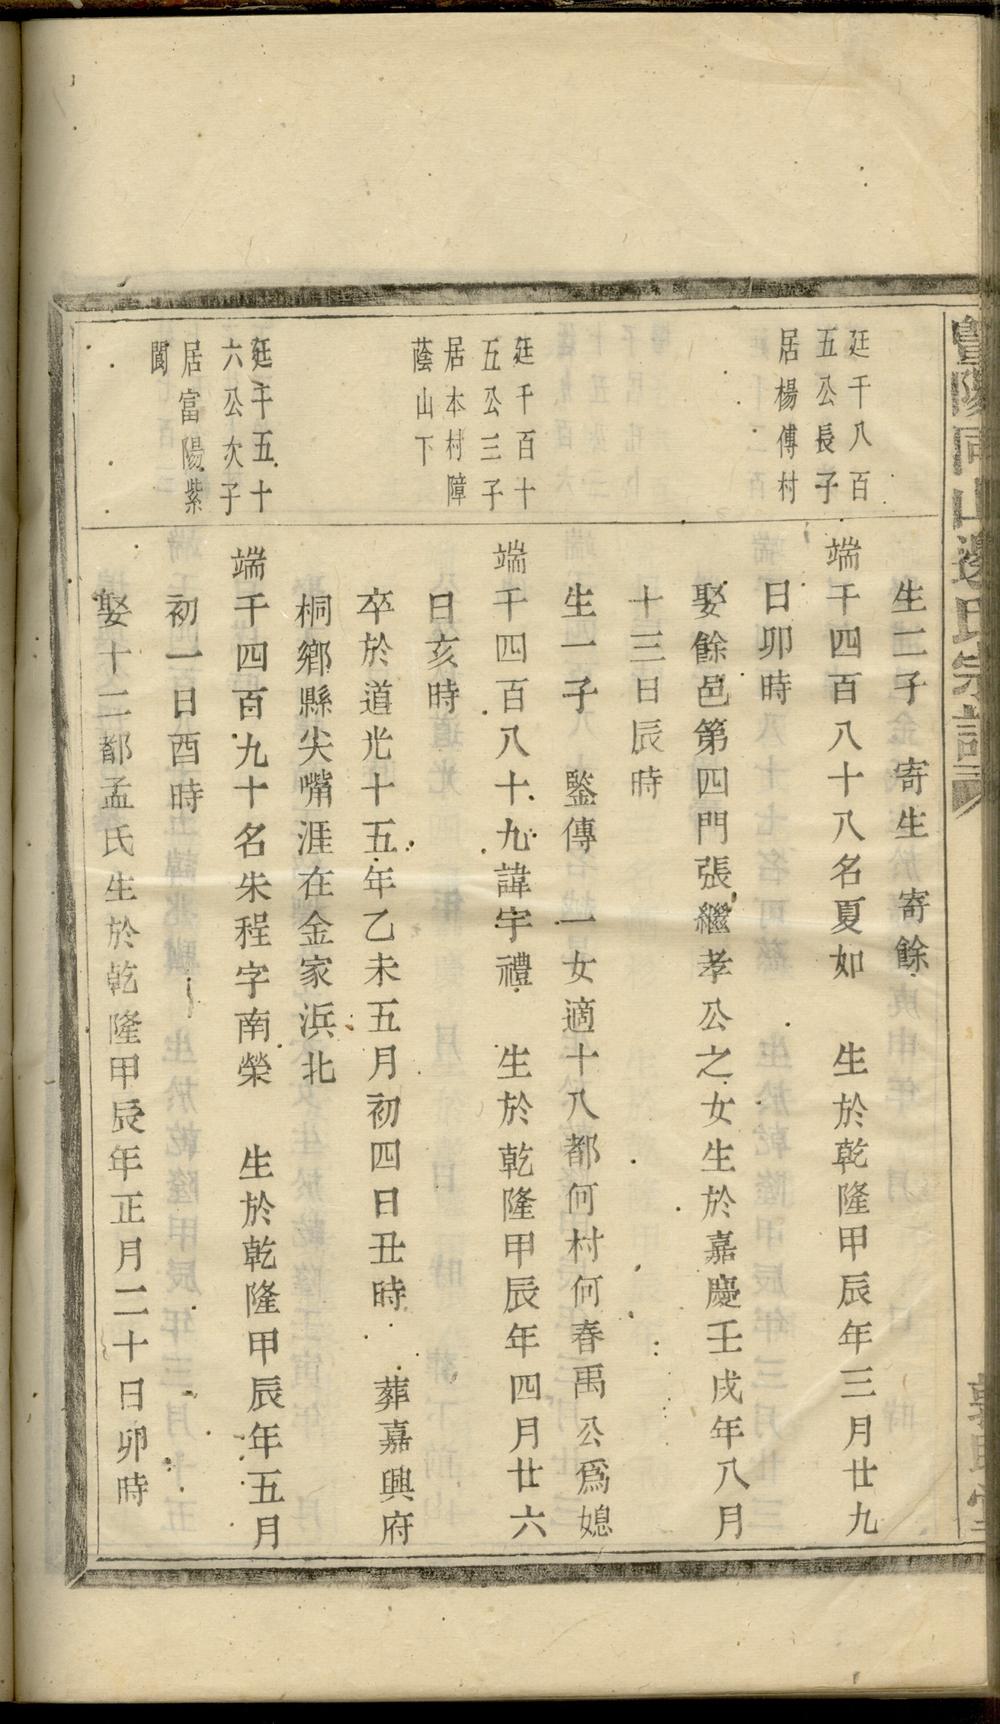 暨陽同山邊氏宗譜
生二子　寄生　寄餘
廷千八百
五公長子
居楊傅村
端千四百八十八名夏如　生於乾隆甲辰年三月廿九
日卯時
娶餘邑第四門張繼孝公之女生於嘉慶壬戌年八月
十三日辰時
生一子　鑒傳　一女適十八都何村何春禹公爲媳
廷千百十
五公三子
居本村障
蔭山下
端千四百八十九諱宇禮　生於乾隆甲辰年四月廿六
日亥時
卒於道光十五年乙未五月初四日丑時　葬嘉興府
桐鄉縣尖嘴涯在金家浜北
廷千五十
六公次子
居富陽紫
閬
端千四百九十名朱程字南榮　生於乾隆甲辰年五月
初一日酉時
娶十二都孟氏生於乾隆甲辰年正月二十日卯時